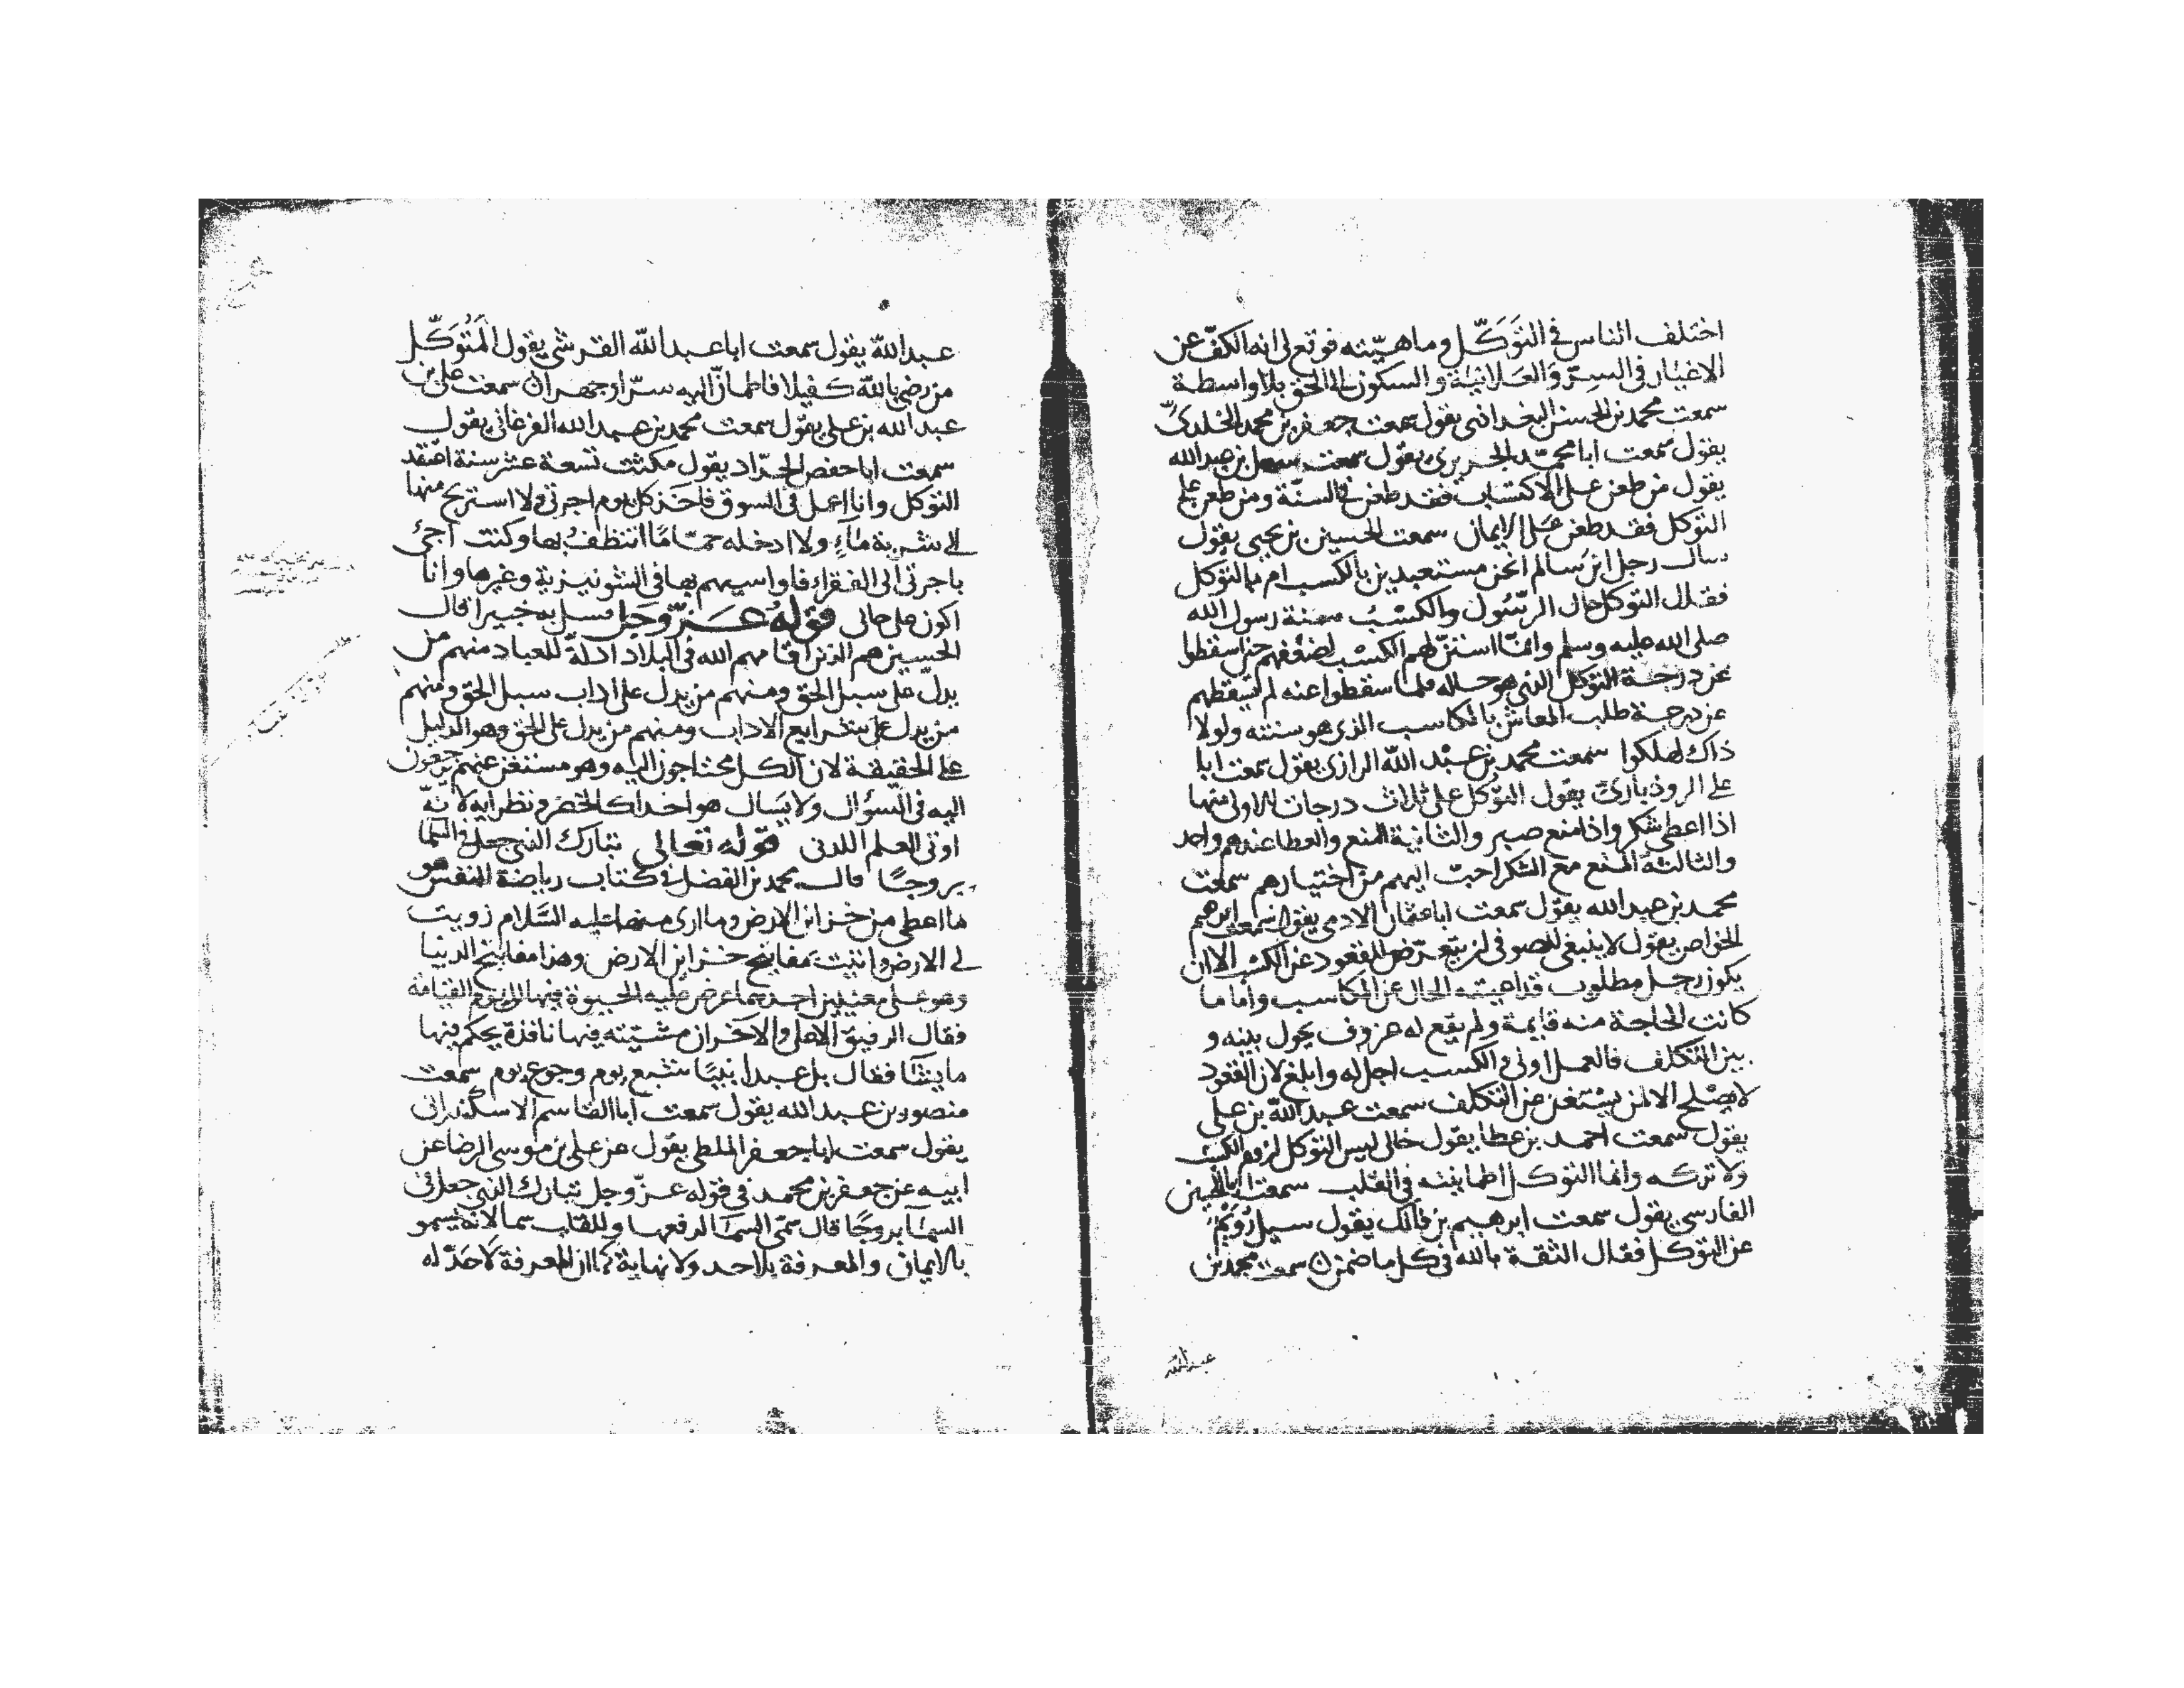 اختلف الناس في التَوَكّل وما هيّته فوقع لي انه الكفّ عن
الاغيار في السِرّ وَالعَلانيَة والسكون الى الحق بلا واسطة
سمعت محمد بن الحسن البغدادى يقول سمعت جعفر بن محمد الخلدىّ
يقول سمعت ابا محمّد الجريرى يقول سمعت سهل بن عبد الله
يقول من طعن على الاكتساب فقد طعن في السنّة ومن طعن على
التوكل فقد طعن على الايمان سمعت الحسين بن يحيى يقول
سال رجل ابن سَالم انحن مستعبدين بالكسب ام بالتوكل
فقال التوكل حال الرسُول والكسْبُ سنة رسول الله
صلى الله عليه وسلم وانّما استنّ لهم الكسْب لضعفهم حين اسقطوا
عن درجة التوكل الذي هو حاله فلما سقطوا عنه لم يسقطهم
عن درجة طلب المعاش بالمكاسب الذى هو سنته ولولا
ذاك لهلكوا سمعت محمد بن عبْد اللّه الرازى يقول سمعت ابا
على الروذبارىّ يقول التوكل على ثلاث درجات الاولى منها
اذا اعطى شكر واذا منع صبر والثانية المنع والعطا عندهم واحد
والثالثة المنع مع الشكر احبّ اليهم من اختيارهم سمعت
محمد بن عبد الله يقول سمعت ابا عثمان الادمى يقول سمعت ابرهيم
الخواص يقول لا ينبغى للصوفى ان يتعرّض للقعود عن الكسْب الا ان
يكون رجل مطلوب قد اعيته الحال عن المكاسب واما ما
كانت الحاجة منه قايمة ولم يقع له عزوف يحول بينه و
بين التكلف فالعمل اولى والكسب اجل له وابلغ لان القعود
لا يصْلح الا لمن يسْتغن عن التكلف سمعت عبد اللّه بن على
يقول سمعت احمد بن عطا يقول خالى ليس التوكل لزوم الكسْب
ولا تركه وانما التوكل طمانينه في القلب سمعت ابا الحسين
الفارسى يقول سمعت ابرهيم بن فاتك يقول سيل رُوَيْمُ
عن التوكل فقال الثقة بالله فى كل ما ضمن سمعت محمد بن
عبد الله
عبد اللّه يقول سمعت ابا عبد اللّه القرشى يقول المُتوَكّل
من رضى باللّه كفيلا فاطمانّ اليه سرّا وجهرا سمعت على بن
عبد الله بن على يقول سمعت محمد بن عبد الله الفرغانى يقول
سمعت ابا حفص الحدّاد يقول مكثت تسعة عشر سنة اعتقد
التوكل وانا اعمل فى السوق فاخذ كل يوم اجرتى ولا استريح منها
الى شربة مَآءٍ ولا ادخله حمّامًا اتنظفُ بها وكنت اجئ
باجرتى الى الفقراء فاواسيهم بها فى الشونيزية وغيرها وانا
اكون على حالى قوْلهُ عَزّ وَجَل فسل به خبيرا قال
الحسين هم الذين اقامهم الله فى البلاد ادلّة للعباد منهم من
يدلّ على سبل الحق ومنهم من يدل على اداب سبل الحق ومنهم
من يدل على شرايع الاداب ومنهم من يدل على الحق وهو الدليل
على الحقيقة لان الكل محتاجون اليه وهو مستغن عنهم يرجعون
اليه فى السؤال ولا يسَال هو احدا كالخضر ونظرايه لانّه
اوتى العلم اللدنى قوْله تعالى تبارك الذي جعل فى السّما
بروجًا قال محمد بن الفضل فى كتاب رياضة النفس هو
ما اعطى من خزاين الارض وما ارى منها عليه السَّلام زويت
لى الارض واتيت بمفاتيح خزاين الارض وهذا مفاتيح الدنيا
وهو على معنيين احدهما عرض عليه الحيوة فيها الى يوم القيامة
فقال الرفيق الاعلى والاخر ان مشيّته فيها نافذة يحكم فيها
ما يشَا فقال بل عبدا نبيًا شبع يوم وجوع يوم سمعت
منصور بن عبد الله يقول سمعت ابا القاسم الاسكندرانى
يقول سمعت ابا جعفر الملطى يقول عن على بن موسى الرضا عن
ابيه عن جعفر بن محمد فى قوله عزّ وجل تبارك الذي جعل فى
السمَآ بروجًا قال سمّى السمَا لرفعها وللقلب سما لانه يَسمو
بالايمان والمعرفة بلا حد ولا نهاية كما ان المعرفة لَا حَدّ له